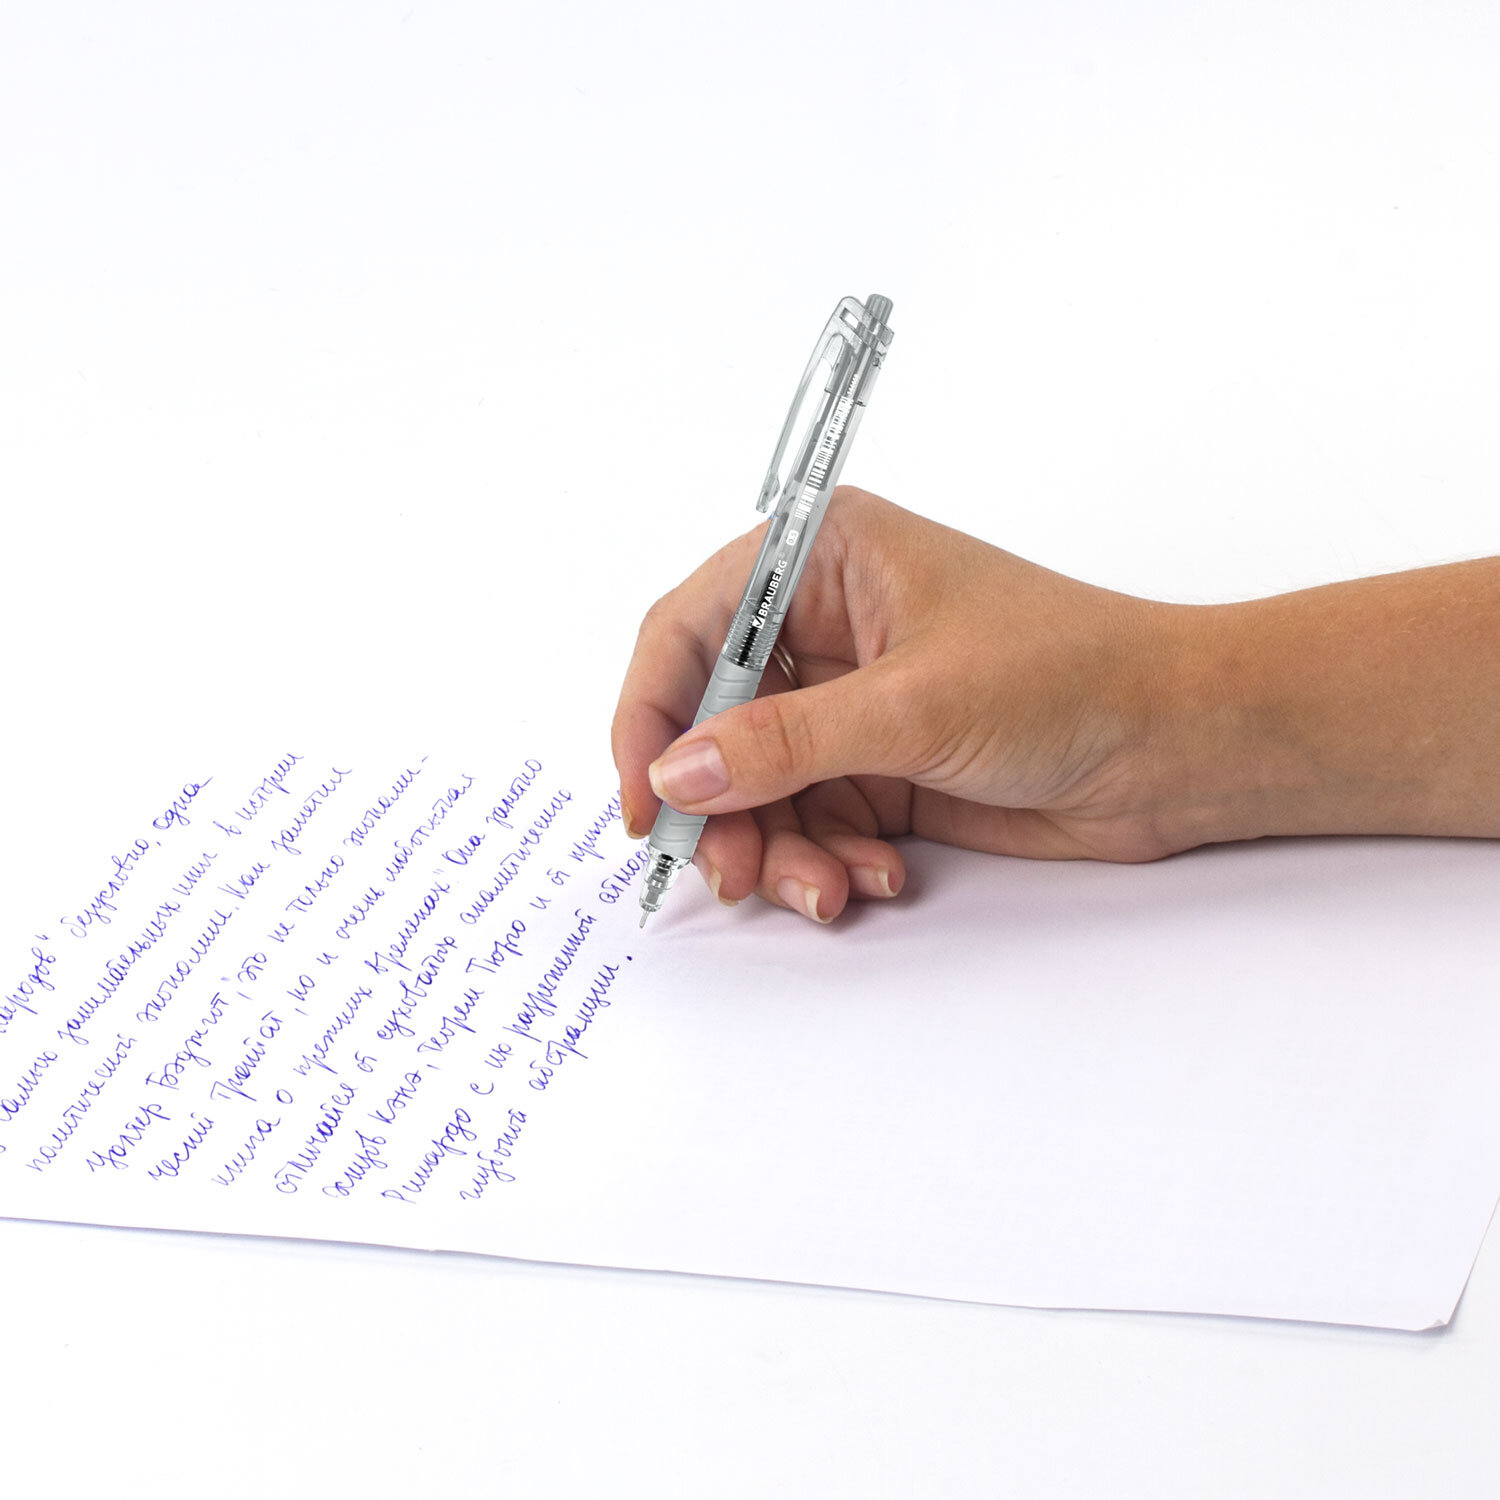 народов" безусловно, одна
самых занимательных книг в истории
политической экономии. Как заметил
Уолтер Бэджгот, "это не только экономи-
ческий трактат, но и очень любопытная
книга о прежних временах". Она заметно
отличается от суховатых аналитических
жмуров Кэнэ, теорем Тюрго и от
Рикардо с их разреженной атмос
глубокой абстракции.
BRAUBERG
0.5